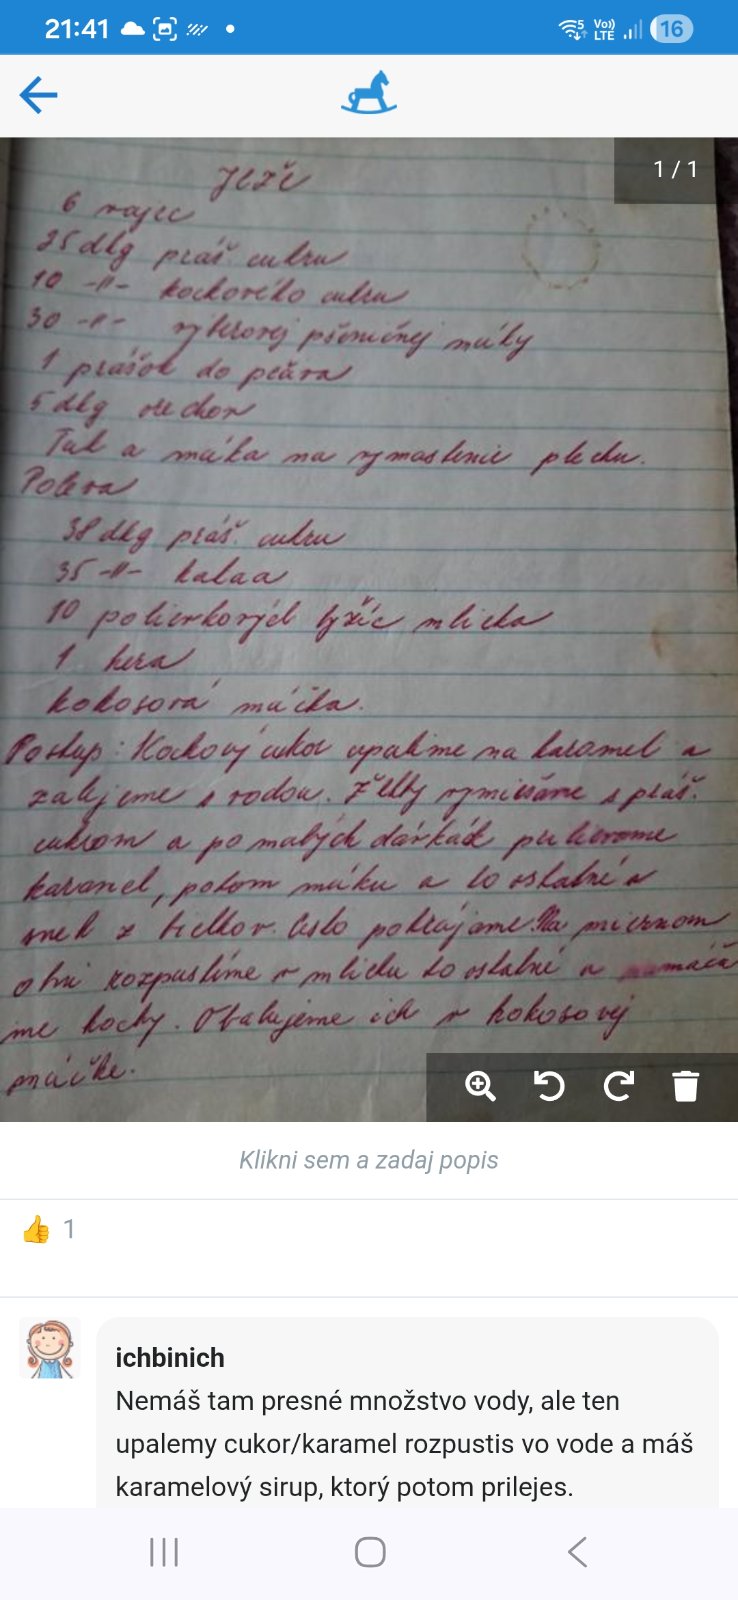 21:41
Vo))
LTE
16
1 / 1
Ježe
6 vajec
25 dkg práš. cukru
10 -"- kockového cukru
30 -"- výberovej pšeničnej múky
1 prášok do pečiva
5 dkg orechov
Tuk a múka na vymastenie plechu.
Poleva
38 dkg práš. cukru
35 -"- kakaa
10 polievkových lyžíc mlieka
1 hera
kokosová múčka.
Postup: Kockový cukor upálime na karamel a
zalejeme s vodou. Žĺtky vymiešame s práš.
cukrom a po malých dávkách prilievame
karamel, potom múku a to ostatné a
sneh z bielkov. Cesto pokrájame. Na miernom
ohni rozpustíme v mlieku to ostatné a namáča
me kocky. Obaľujeme ich v kokosovej
múčke.
Klikni sem a zadaj popis
👍 1
ichbinich
Nemáš tam presné množstvo vody, ale ten
upalemy cukor/karamel rozpustis vo vode a máš
karamelový sirup, ktorý potom prilejes.